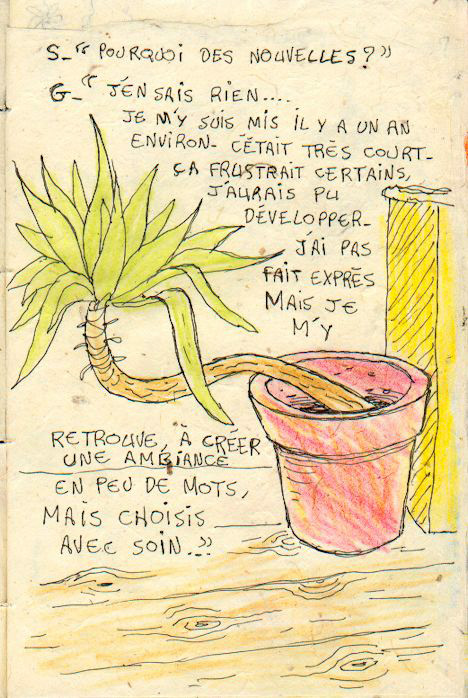 S_"POURQUOI DES NOUVELLES?"
G_"J'EN SAIS RIEN....
JE M'Y SUIS MIS IL Y A UN AN
ENVIRON_ C'ÉTAIT TRÈS COURT_
ÇA FRUSTRAIT CERTAINS,
J'AURAIS PU
DÉVELOPPER_
J'AI PAS
FAIT EXPRÈS
MAIS JE
M'Y
RETROUVE, À CRÉER
UNE AMBIANCE
EN PEU DE MOTS,
MAIS CHOISIS
AVEC SOIN..."